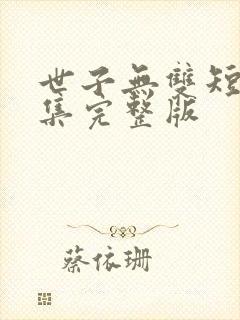 世子無雙短
集完整版
蔡依珊